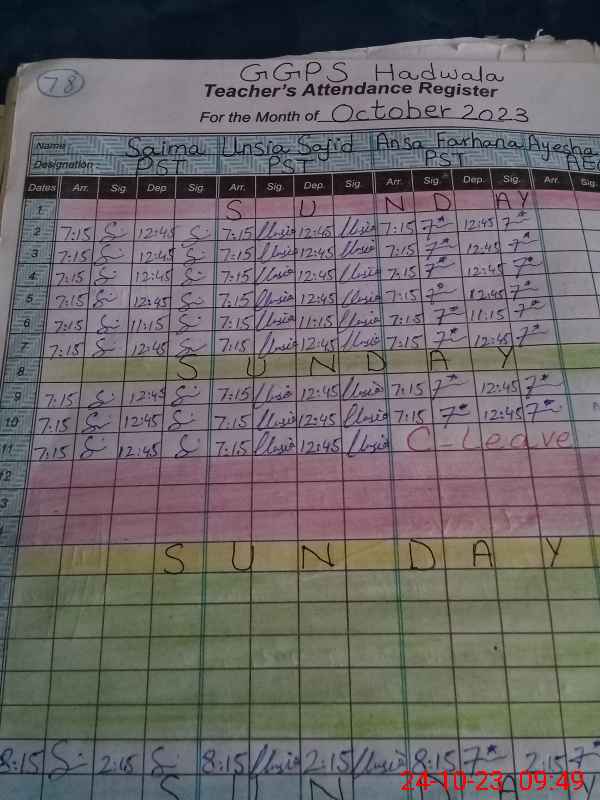 78
GGPS Hadwala
Teacher's Attendance Register
For the Month of October 2023
Name : Saima Unsia Sajid Ansa Farhana Ayesha
Designation : PST PST PST AE
Dates Arr. Sig. Dep Sig. Arr. Sig. Dep. Sig. Arr. Sig. Dep. Sig. Arr. Sig.
1 SUNDAY
2 7:15 12:45 7:15 Unsia 12:45 Unsia 7:15 12:45
3 7:15 12:45 7:15 Unsia 12:45 Unsia 7:15 12:45
4 7:15 12:45 7:15 Unsia 12:45 Unsia 7:15 12:45
5 7:15 12:45 7:15 Unsia 12:45 Unsia 7:15 12:45
6 7:15 11:15 7:15 Unsia 11:15 Unsia 7:15 11:15
7 7:15 12:45 7:15 Unsia 12:45 Unsia 7:15 12:45
8 SUNDAY
9 7:15 12:45 7:15 Unsia 12:45 Unsia 7:15 12:45
10 7:15 12:45 7:15 Unsia 12:45 Unsia 7:15 12:45
11 7:15 12:45 7:15 Unsia 12:45 Unsia C-Leave
12
3
SUNDAY
8:15 2:15 8:15 Unsia 2:15 Unsia 8:15 2:15
SUNDAY
24-10-23 09:49